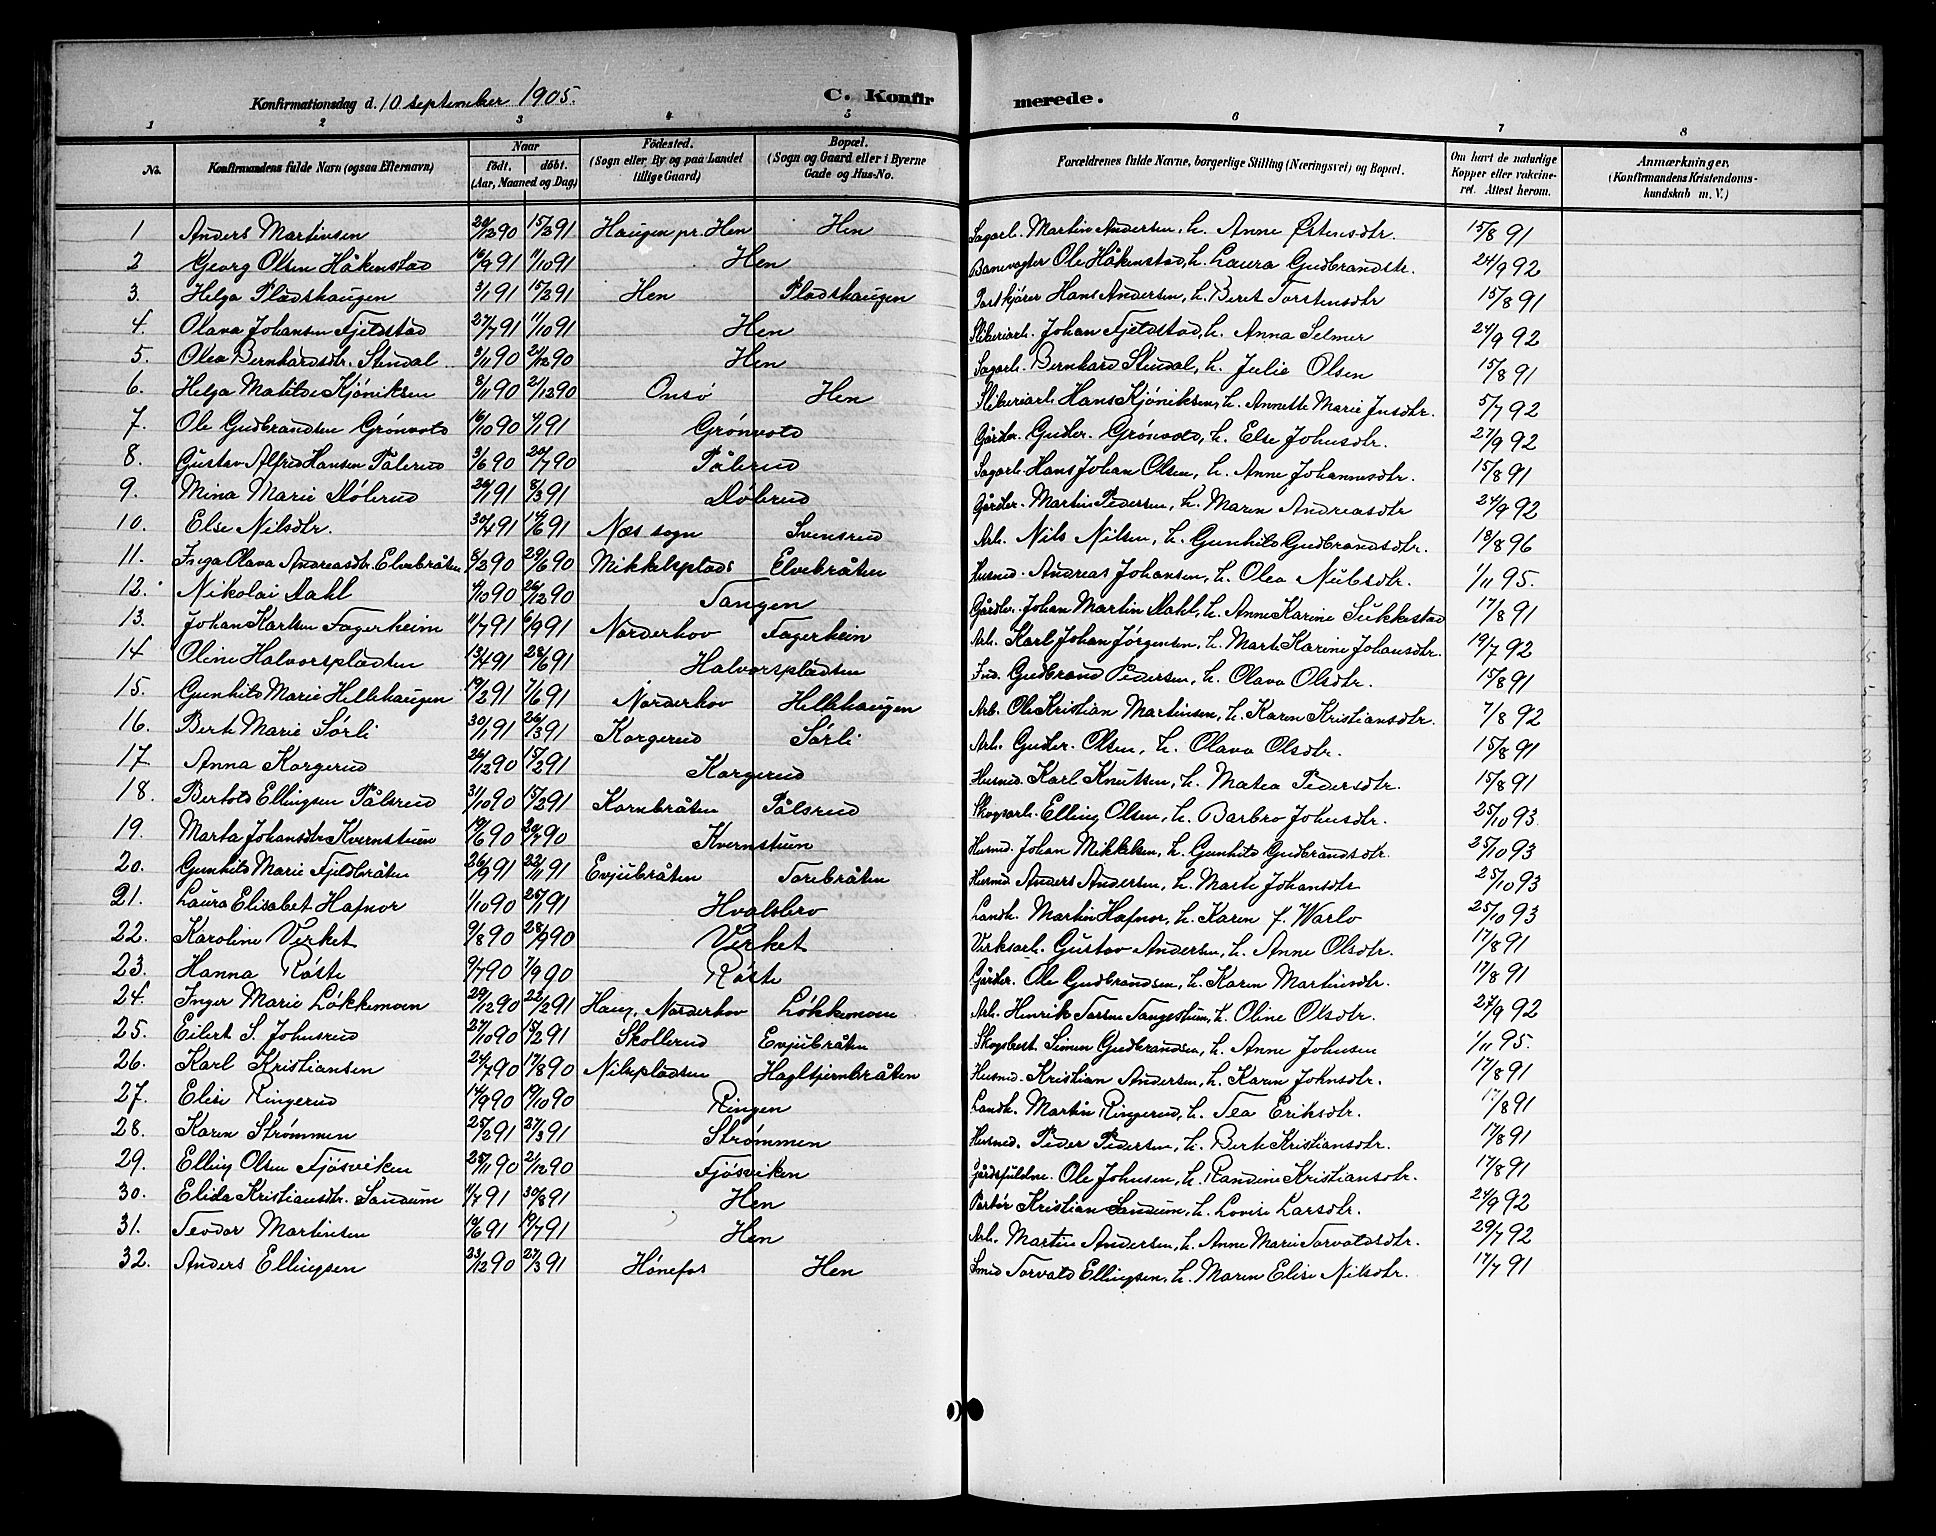 Konfirmationsdag d. 10 september 1905.
C. Konfirmerede.
1 2 3 4 5 6 7 8
No. Konfirmandens fulde Navn (ogsaa Efternavn) Naar født. døbt. (Aar, Maaned og Dag) Fødested. (Sogn eller By og paa Landet tillige Gaard) Bopæl. (Sogn og Gaard eller i Byerne Gade og Hus-No. Forældrenes fulde Navne, borgerlige Stilling (Næringsvei) og Bopæl. Om havt de naturlige Kopper eller vakcineret. Attest herom. Anmærkninger, (Konfirmandens Kristendomskundskab m. V.)
1 Anders Martinsen 29/12 90 15/2 91 Haugen pr. Hen Hen Sagarb. Martin Andersen, h. Anne Østensdtr. 15/8 91
2 Georg Olsen Håkenstad 16/9 91 1/10 91 Hen Banevogter Ole Håkenstad, h. Laura Gudbrandstr. 24/9 92
3. Helga Pladshaugen 3/1 91 15/2 91 Hen Pladshaugen Postkjører Hans Andersen, h. Beret Torstensdtr 15/8 91
4. Olava Johansen Fjeldstad 27/7 91 11/10 91 Hen Sliberiarb. Johan Fjeldstad, h. Anna Selmer 24/9 92
5. Olea Bernhardsdtr. Stendal 3/11 90 21/12 90 Hen Sagarb. Bernhard Stendal, h. Julie Olsen 15/8 91
6. Helga Matilde Kjøniksen 8/11 90 21/12 90 Onsø Hen Sliberiarb. Hans Kjøniksen, h. Annette Marie Jnsdtr. 5/7 92
7. Ole Gudbrandsen Grønvold 16/10 90 4/1 91 Grønvold Gårdbr. Gudbr. Grønvold, h. Else Johnsdtr. 27/9 92
8. Gustav Alfred Hansen Pålsrud 3/6 90 20/7 90 Pålsrud Sagarb. Hans Johan Olsen, h. Anne Johannesdtr. 15/8 91
9. Mina Marie Dølerud 26/1 91 8/3 91 Dølerud Gårdbr. Martin Pedersen, h. Maren Andreasdtr 24/9 92
10. Else Nilsdtr. 30/4 91 14/6 91 Næs sogn Svensrud Arb. Nils Nilsen, h. Gunhild Gudbrandsdtr. 18/8 96
11. Inga Olava Andreasdtr. Elvebråten 8/3 90 29/6 90 Mikkelsplads Elvebråten Husmd. Andreas Johansen, h. Olea Nubsdtr. 1/11 95.
12. Nikolai Dahl 4/10 90 26/12 90 Tangen Gårdbr. Johan Martin Dahl, h. Anne Karine Sukkestad 17/8 91
13. Johan Karlsen Fagerheim 11/7 91 6/9 91 Norderhov Fagerheim Arb. Karl Johan Jørgensen, h. Marte Karine Johansdtr. 19/7 92
14 Oline Halvorspladsen 13/4 91 28/6 91 Halvorspladsen Gudbrand Pedersen, h. Olava Olsdtr. 15/8 91
15. Gunhild Marie Hellehaugen 19/2 91 7/6 91 Norderhov Hellehaugen Arb. Ole Kristian Martinsen, h. Karen Kristiansdtr. 7/8 92
16. Berte Marie Sørli 30/1 91 26/3 91 Korgerud Sørli Arb. Gudbr. Olsen, h. Olava Olsdtr. 15/8 91
17 Anna Korgerud 26/12 90 15/2 91 Korgerud Husmd. Karl Knutsen, h. Matea Pedersdtr. 15/8 91
18. Bertold Ellingsen Pålsrud 31/10 90 15/2 91 Kornbråten Pålsrud Skogsarb. Elling Olsen, h. Barbro Johnsdtr. 25/10 93.
19. Marta Johansdtr Kvernstuen 19/6 90 20/7 90 Kvernstuen Husmd. Johan Mikkelsen, h. Gunhild Gudbrandsdtr. 25/10 93
20. Gunhild Marie Fjeldbråten 26/9 91 22/11 91 Evjubråten Torebråten Husmd Anders Andersen, h. Marte Johansdtr 25/10 93
21. Laura Elisabet Hafnor 1/10 90 25/1 91 Hvalsbro Landh. Martin Hafnor, h. Karen f. Warlo 25/10 93
22. Karoline Verket 9/8 90 28/9 90 Verket Verksarb. Gustav Andersen, h. Anne Olsdtr. 17/8 91
23. Hanna Røste 9/7 90 7/9 90 Røste Gårdbr. Ole Gudbrandsen, h. Karen Martinsdtr. 17/8 91
24. Inger Marie Løkkemoen 29/12 90 22/2 91 Haug, Norderhov Løkkemoen Arb. Henrik Torsen Tangestuen, h. Oline Olsdtr. 27/9 92
25. Eilert S. Johnsrud 27/10 90 15/2 91 Skollerud Evjubråten Skogsbest. Simen Gudbrandsen, h. Anne Johnsen 1/11 95.
26. Karl Kristiansen 24/7 90 17/8 90 Nilspladsen Hagltjernbråten Husmd. Kristian Andersen, h. Karen Johnsdtr. 17/8 91
27. Elise Ringerud 14/9 90 19/10 90 Ringen Landh. Martin Ringerud, h. Tea Eriksdtr. 17/8 91
28. Karen Strømmen 25/2 91 27/3 91 Strømmen Husmd. Peder Pedersen, h. Berte Kristiansdtr. 17/8 91
29. Elling Olsen Fjøsviken 25/11 90 21/12 90 Fjøsviken Ole Johnsen, h. Randine Kristiansdtr. 17/8 91
30. Elida Kristiansdtr. Sandum 11/7 91 30/8 91 Hen Portør Kristian Sandum, h. Lovise Larsdtr. 24/9 92
31. Teodor Martinsen 10/6 91 19/7 91 Hen Arb. Martin Andersen, h. Anne Marie Torvaldsdtr. 29/7 92
32. Anders Ellingsen 23/12 90 27/3 91 Hønefos Hen Smed Torvald Ellingsen, h. Maren Elise Nilsdtr. 17/7 91